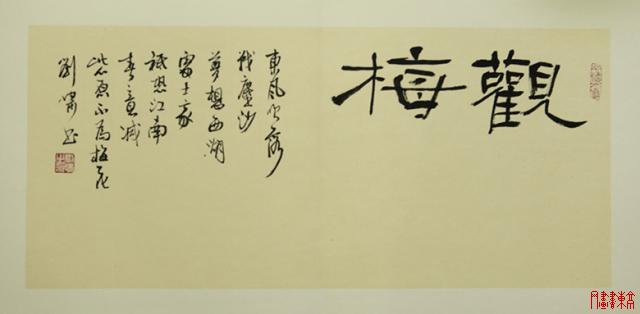 觀梅
東風吹落
戰塵沙
夢想西湖
處士家
祗恐江南
春意減
此心原不為梅花
劉 書